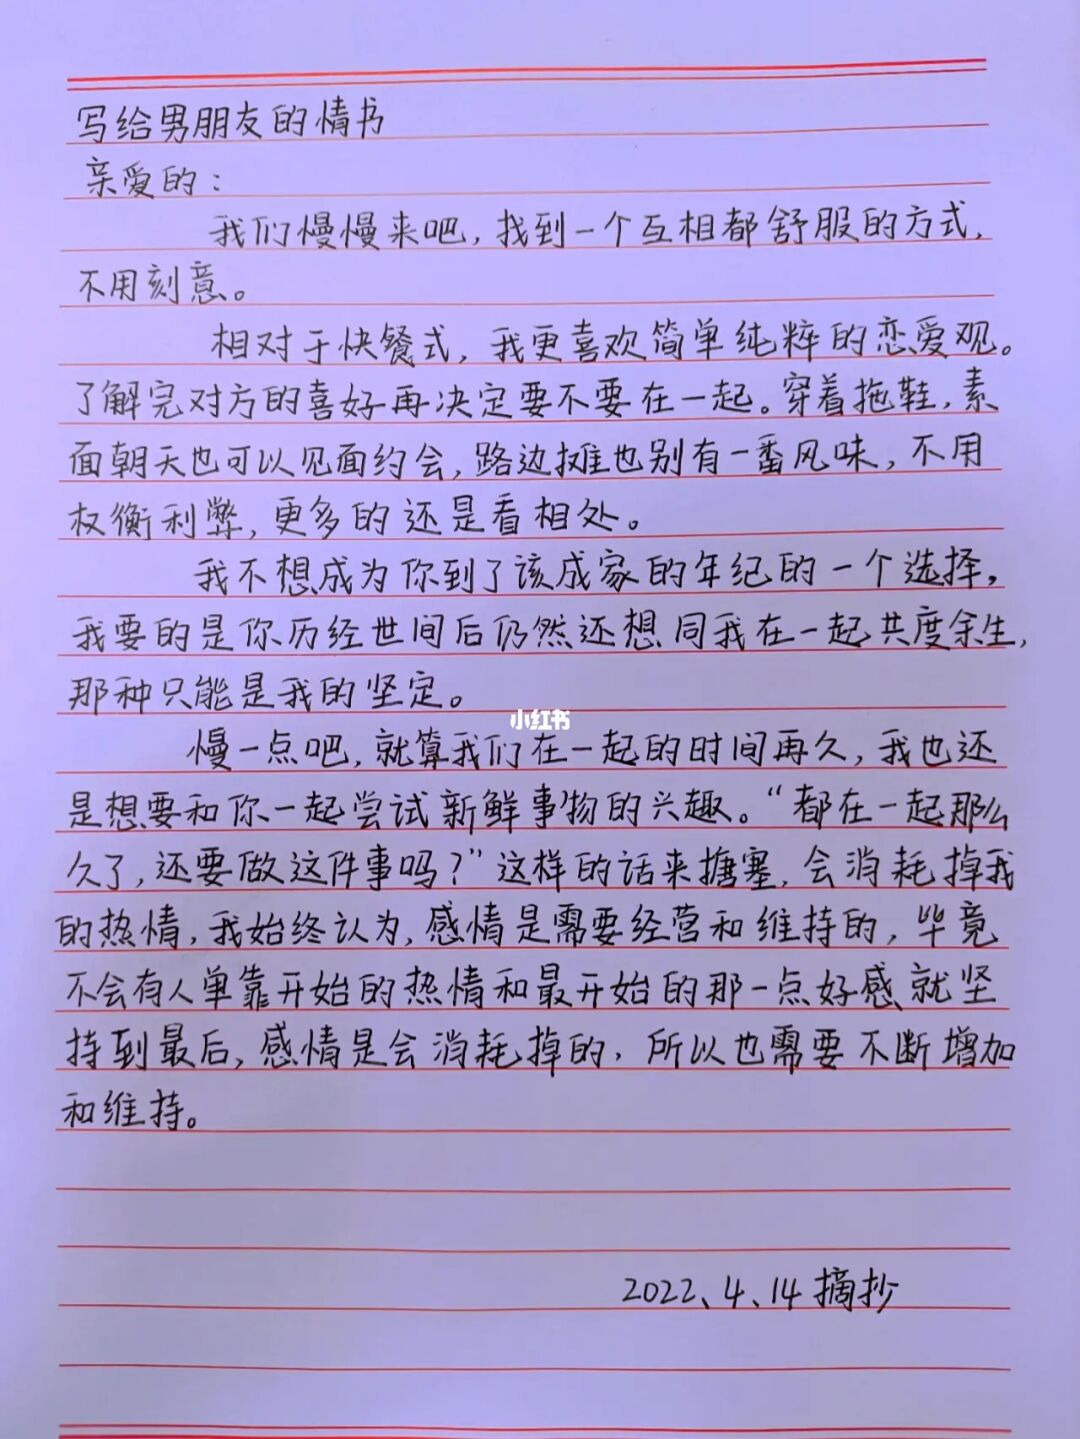 写给男朋友的情书
亲爱的:
我们慢慢来吧,找到一个互相都舒服的方式,
不用刻意。
相对于快餐式,我更喜欢简单纯粹的恋爱观。
了解完对方的喜好再决定要不要在一起。穿着拖鞋,素
面朝天也可以见面约会,路边摊也别有一番风味,不用
权衡利弊,更多的还是看相处。
我不想成为你到了该成家的年纪的一个选择,
我要的是你历经世间后仍然还想同我在一起共度余生,
那种只能是我的坚定。
小红书
慢一点吧,就算我们在一起的时间再久,我也还
是想要和你一起尝试新鲜事物的兴趣。“都在一起那么
久了,还要做这件事吗?”这样的话来搪塞,会消耗掉我
的热情,我始终认为,感情是需要经营和维持的,毕竟
不会有人单靠开始的热情和最开始的那一点好感就坚
持到最后,感情是会消耗掉的,所以也需要不断增加
和维持。
2022、4、14摘抄